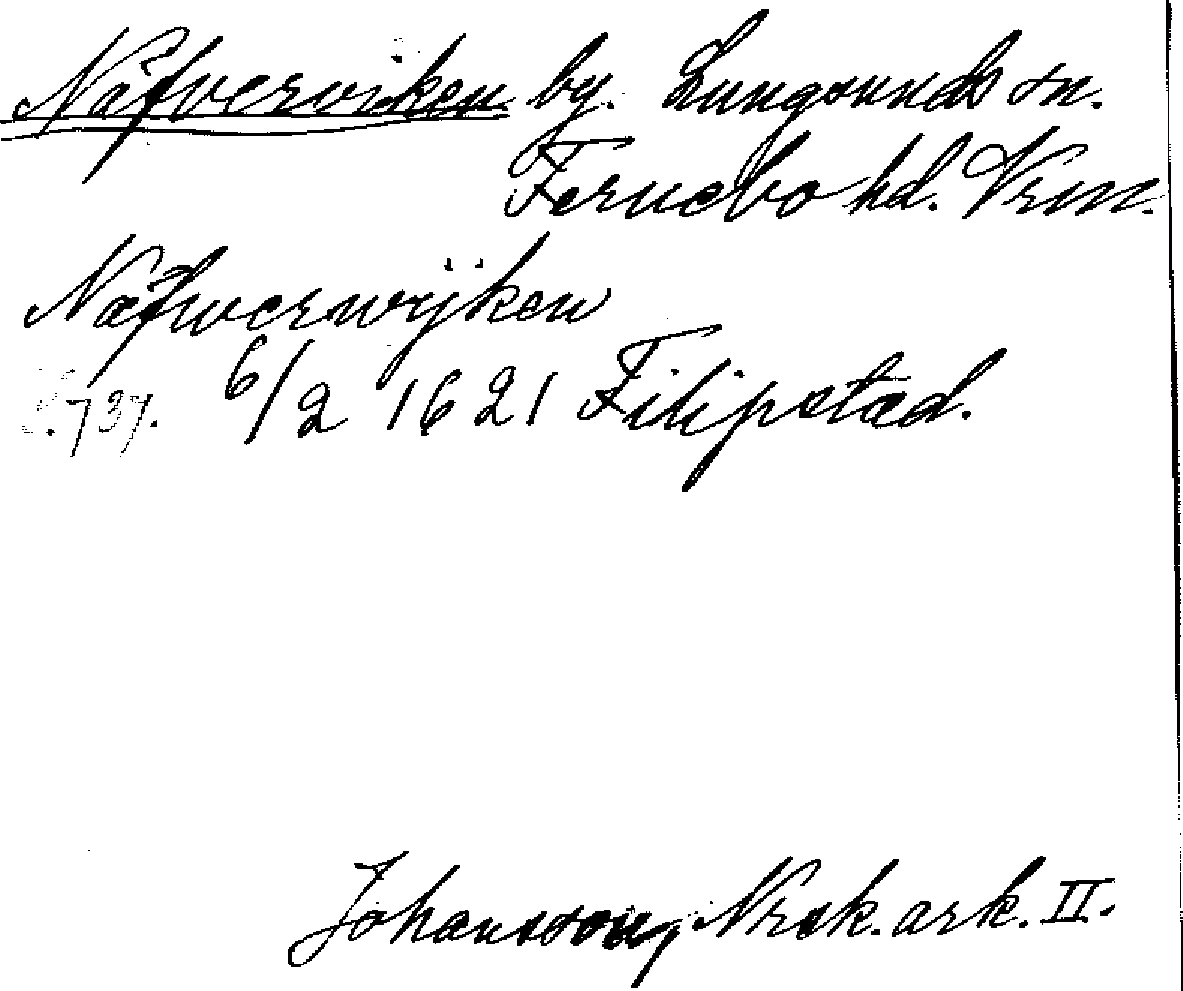 Näfverviken by. Lungsunds sn.
Fernebo hd. Vrm.
Näfwerwijken
.737. 6/2 1621 Filipstad.
Johansson, Nrsk. ark. II.